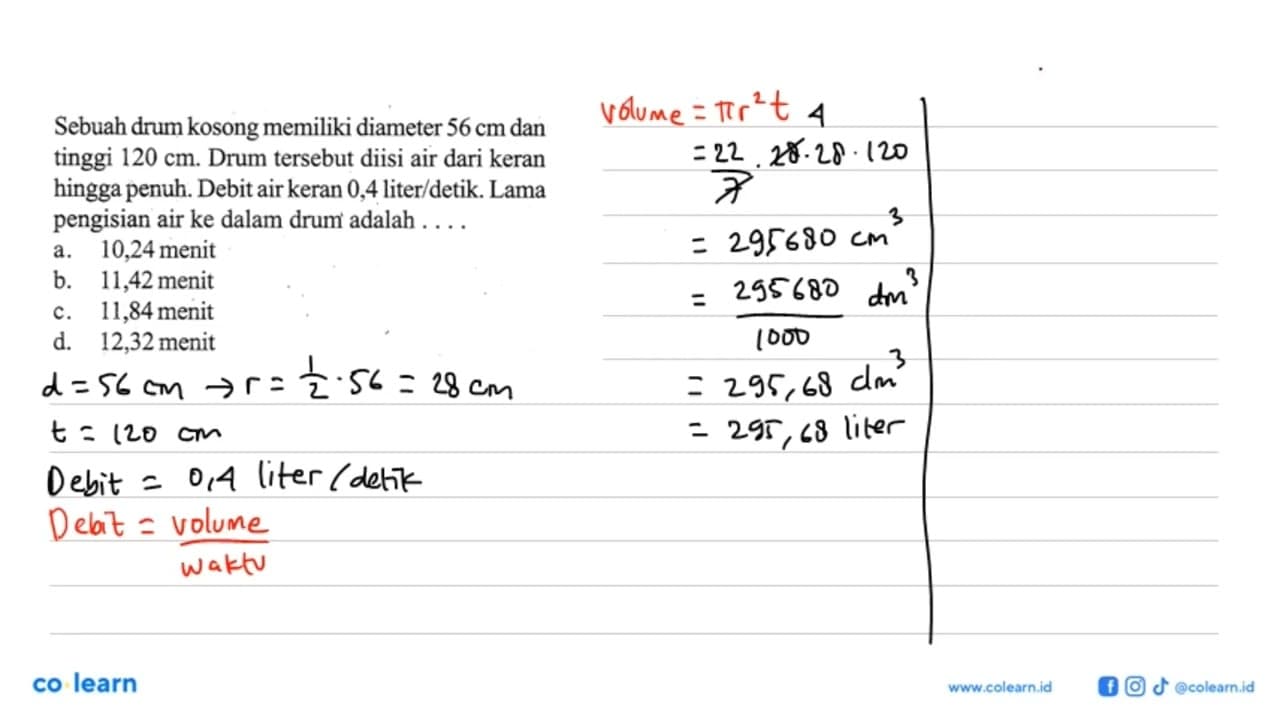 Sebuah drum kosong memiliki diameter 56 cm dan
tinggi 120 cm. Drum tersebut diisi air dari keran
hingga penuh. Debit air keran 0,4 liter/detik. Lama
pengisian air ke dalam drum adalah . . . .
a. 10,24 menit
b. 11,42 menit
c. 11,84 menit
d. 12,32 menit
d = 56 cm → r = 1/2 · 56 = 28 cm
t = 120 cm
Debit = 0,4 liter/detik
Debit = volume
waktu
volume = πr²t
4
= 22/7 · 28 · 28 · 120
= 295680 cm³
= 295680/1000 dm³
= 295,68 dm³
= 295,68 liter
co learn
www.colearn.id
@colearn.id